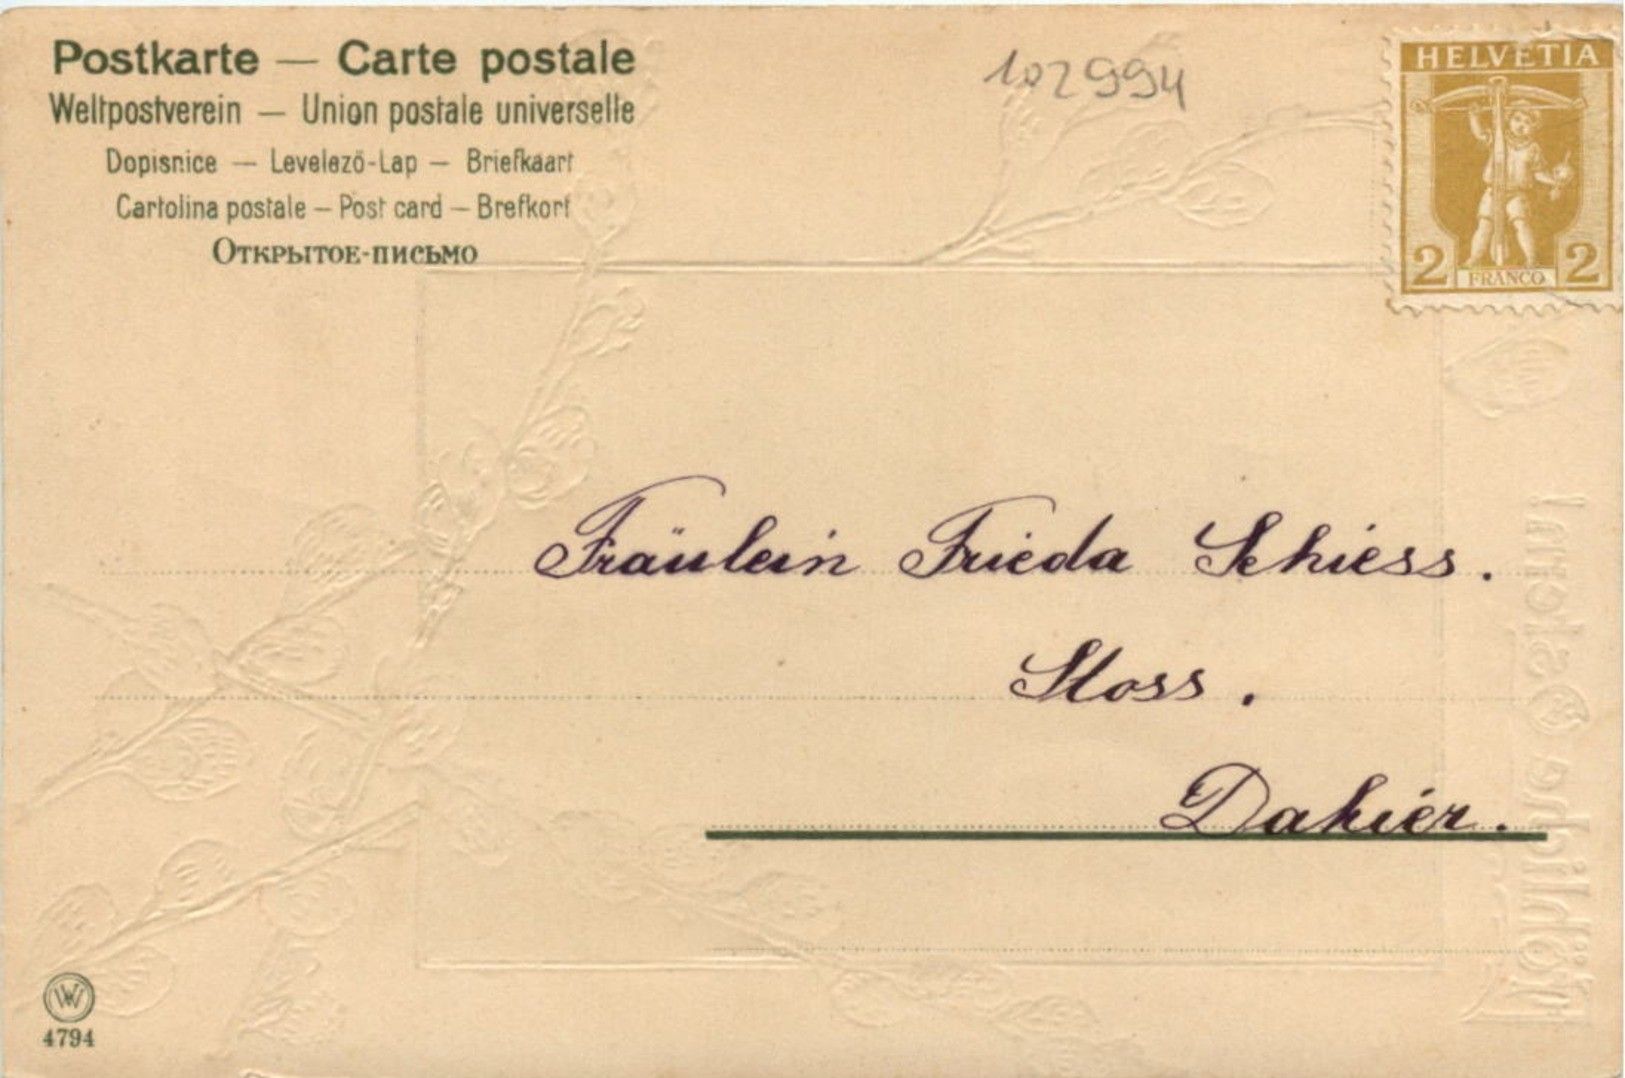 Postkarte — Carte postale
Weltpostverein — Union postale universelle
Dopisnice — Levelező-Lap — Briefkaart
Cartolina postale — Post card — Brefkort
Открытое-письмо
102994
HELVETIA
2 FRANCO 2
Fräulein Frieda Schiess.
Stoss.
Dahier.
4794